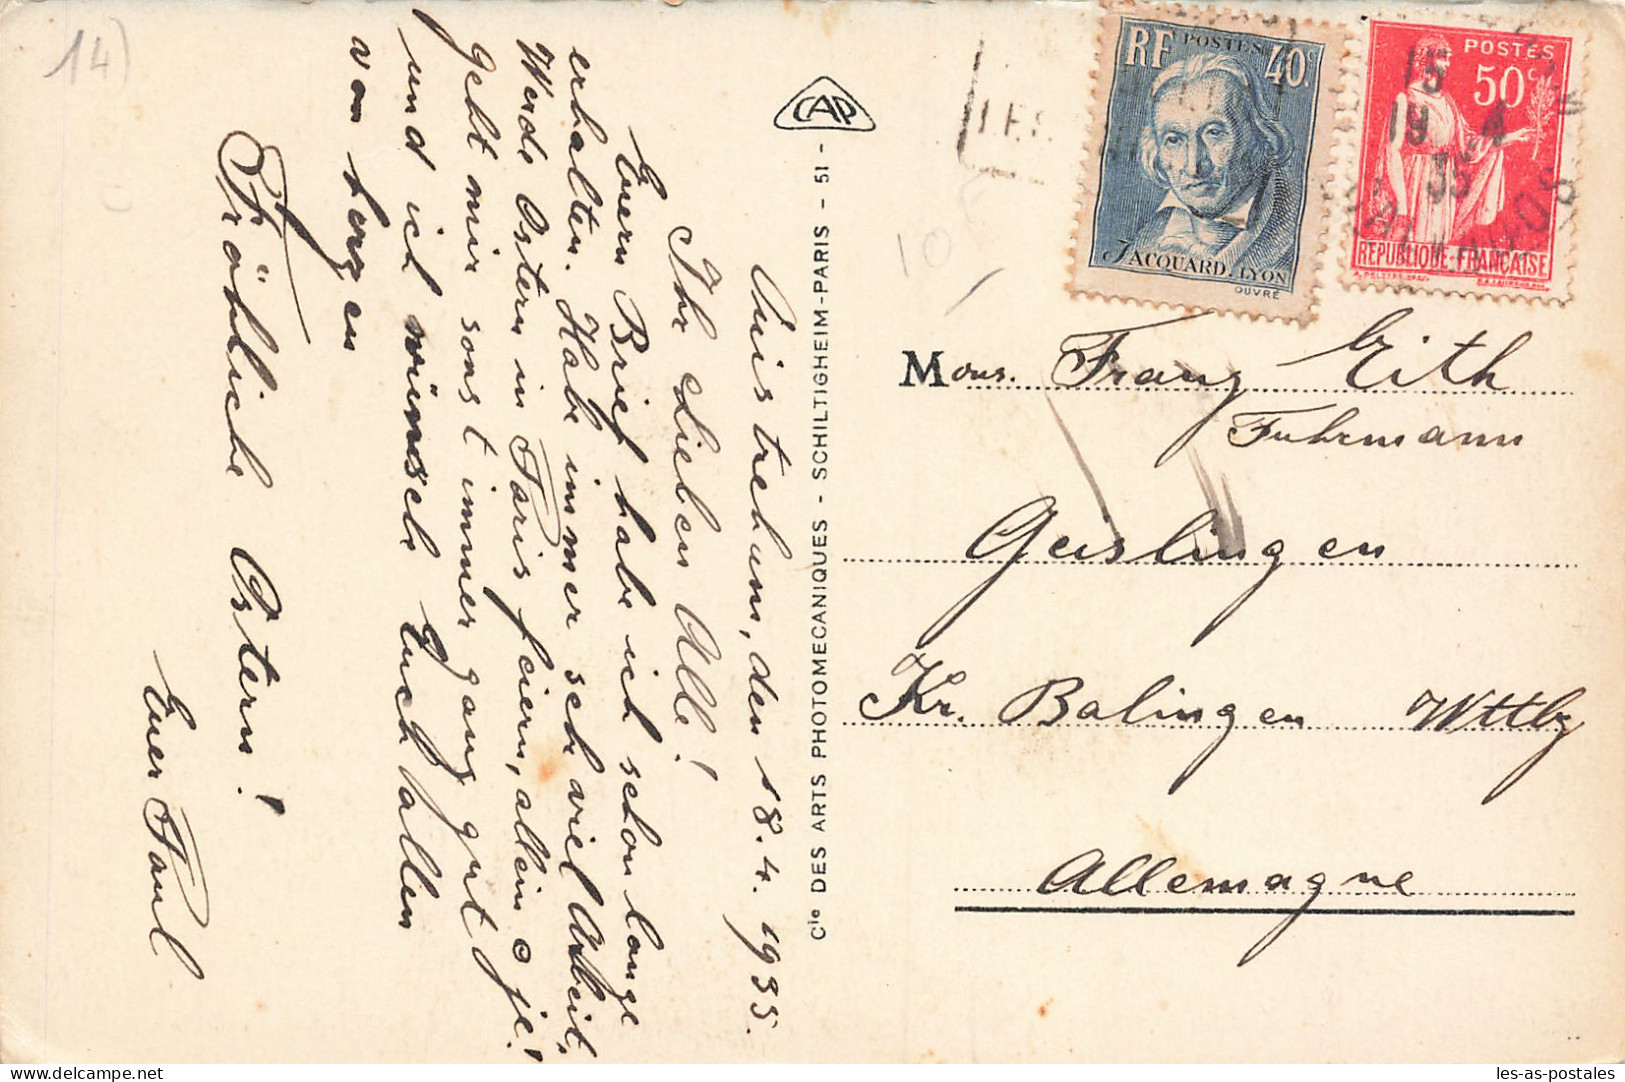 14)
Ouistreham, den 18.4.1935.
Ihr lieben All!
Euern Brief habe ich schon lange
erhalten. Habe immer seh viel Arbeit,
Werde Ostern in Paris feiern, allein oje!
Geht mir sonst immer ganz gut
und ich wünsche Euch allen
von
Fröhliche Ostern!
Euer Paul
CAP
Cie DES ARTS PHOTOMECANIQUES - SCHILTIGHEIM-PARIS - 51 -
10
RF POSTES 40c
JACQUARD. LYON
OUVRÉ
POSTES
50c
REPUBLIQUE FRANCAISE
15
19 4
35
Mons. Franz Eith
Fuhrmann
Geislingen
Kr. Balingen Wttbg
Allemagne
delcampe.net
les-as-postales